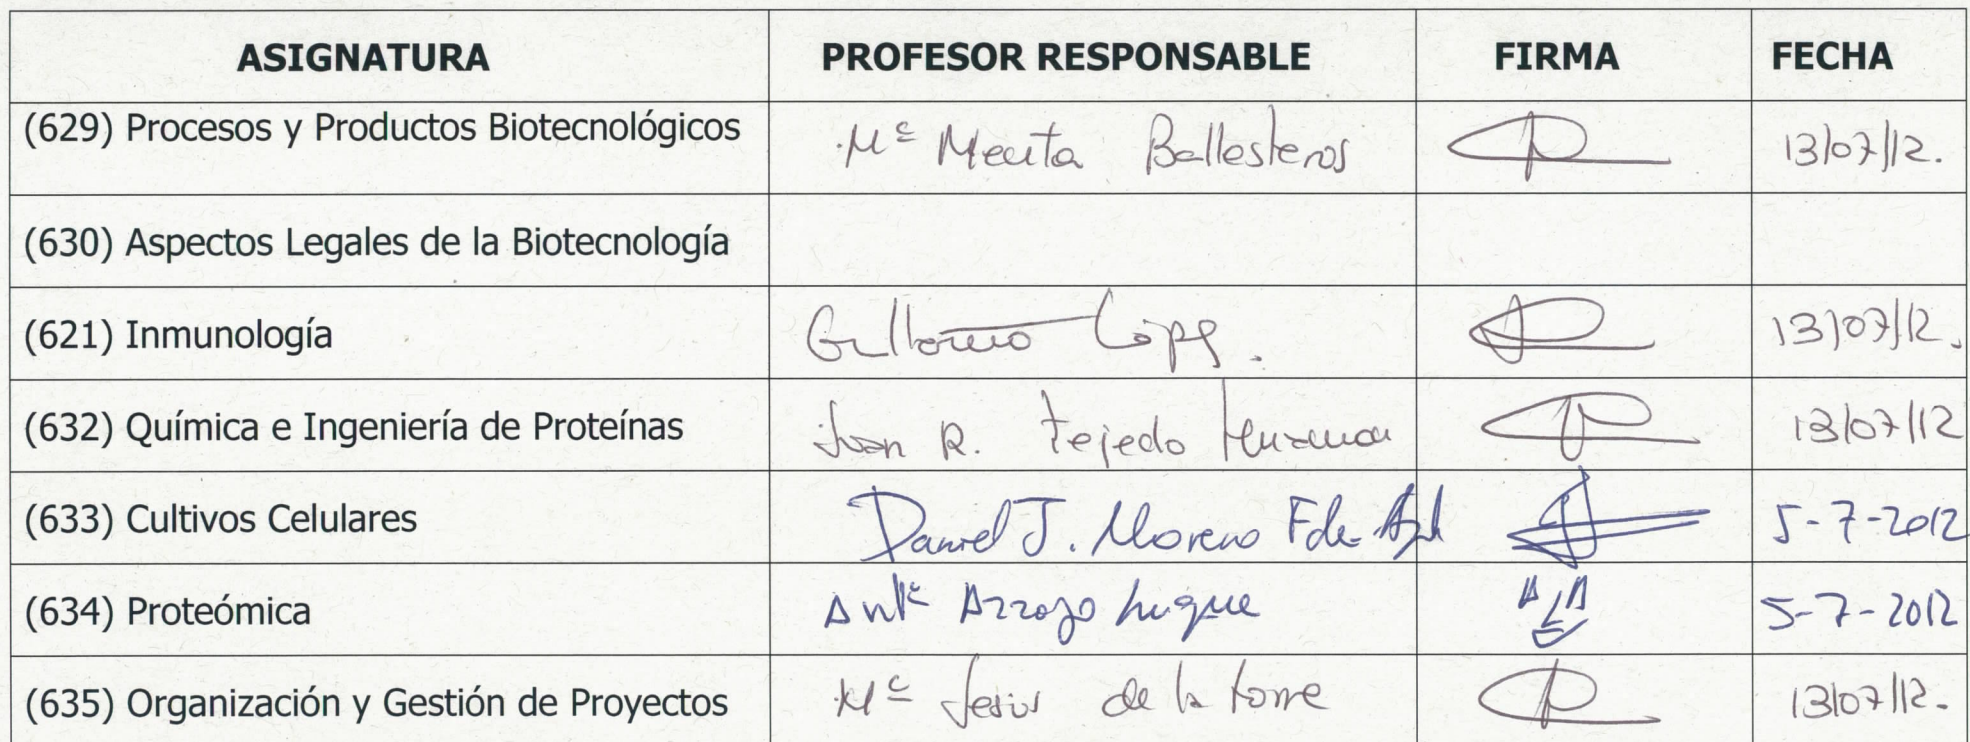 ASIGNATURA PROFESOR RESPONSABLE FIRMA FECHA
(629) Procesos y Productos Biotecnológicos Mª Menta Ballesteros 13/07/12.
(630) Aspectos Legales de la Biotecnología
(621) Inmunología Guillermo López. 13/07/12.
(632) Química e Ingeniería de Proteínas Juan R. Tejedo 13/07/12
(633) Cultivos Celulares Daniel J. Moreno Fde- 5-7-2012
(634) Proteómica Antª Arroyo Luque 5-7-2012
(635) Organización y Gestión de Proyectos Mª Jesús de la Torre 13/07/12.